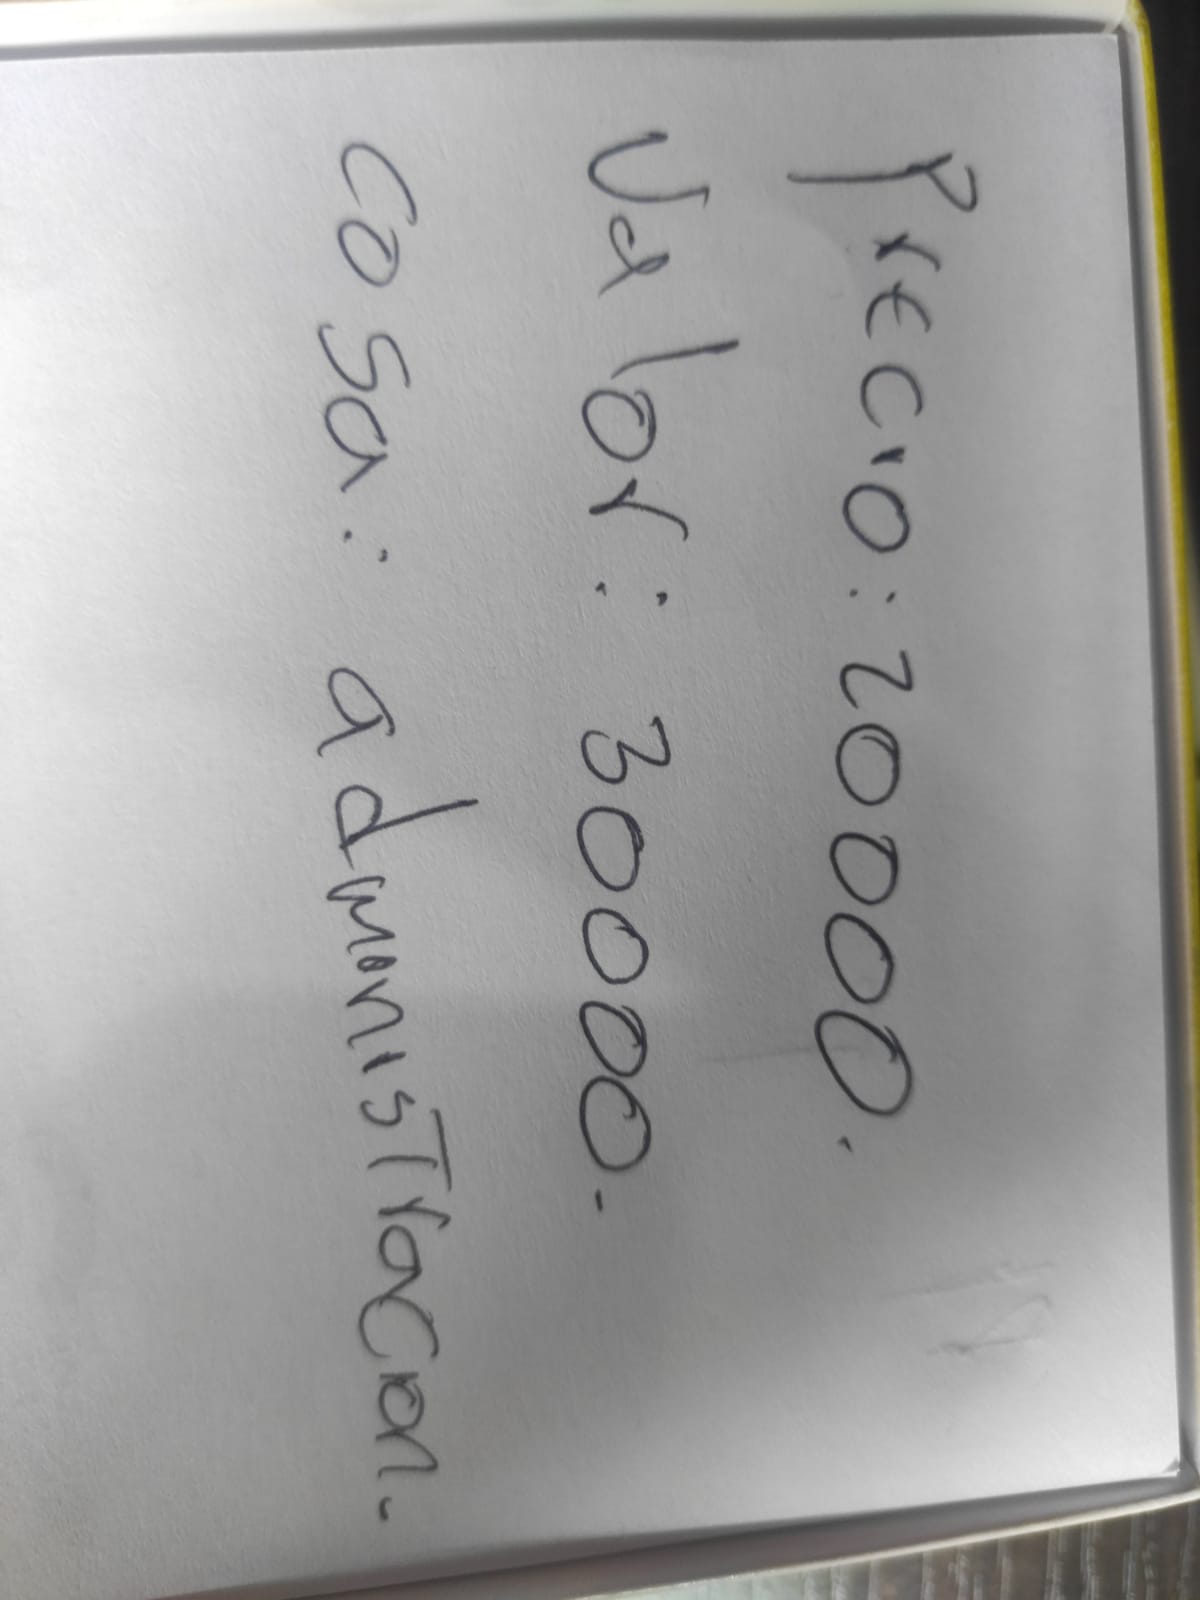 Precio: 20000.
Valor: 30000.
Cosa: administracion.